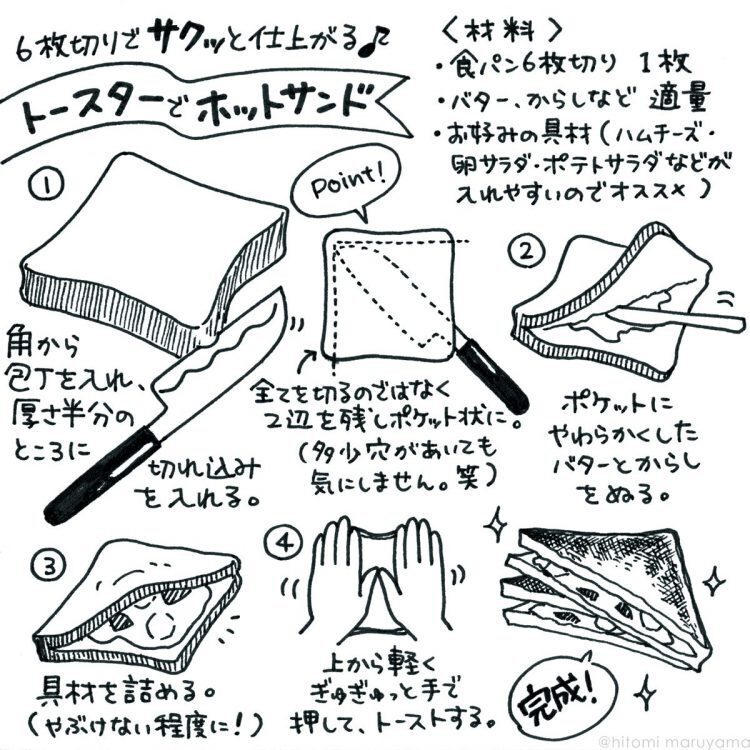 6枚切りでサクッと仕上がる♪
トースターでホットサンド
〈材料〉
・食パン6枚切り 1枚
・バター、からしなど 適量
・お好みの具材(ハムチーズ・
卵サラダ・ポテトサラダなどが
入れやすいのでオススメ)
①
角から
包丁を入れ、
厚さ半分の
ところに
切れ込み
を入れる。
Point!
全てを切るのではなく
2辺を残しポケット状に。
(多少穴があいても
気にしません。笑)
②
ポケットに
やわらかくした
バターとからし
をぬる。
③
具材を詰める。
(やぶけない程度に!)
④
上から軽く
ぎゅぎゅっと手で
押して、トーストする。
完成!
@hitomi maruyama